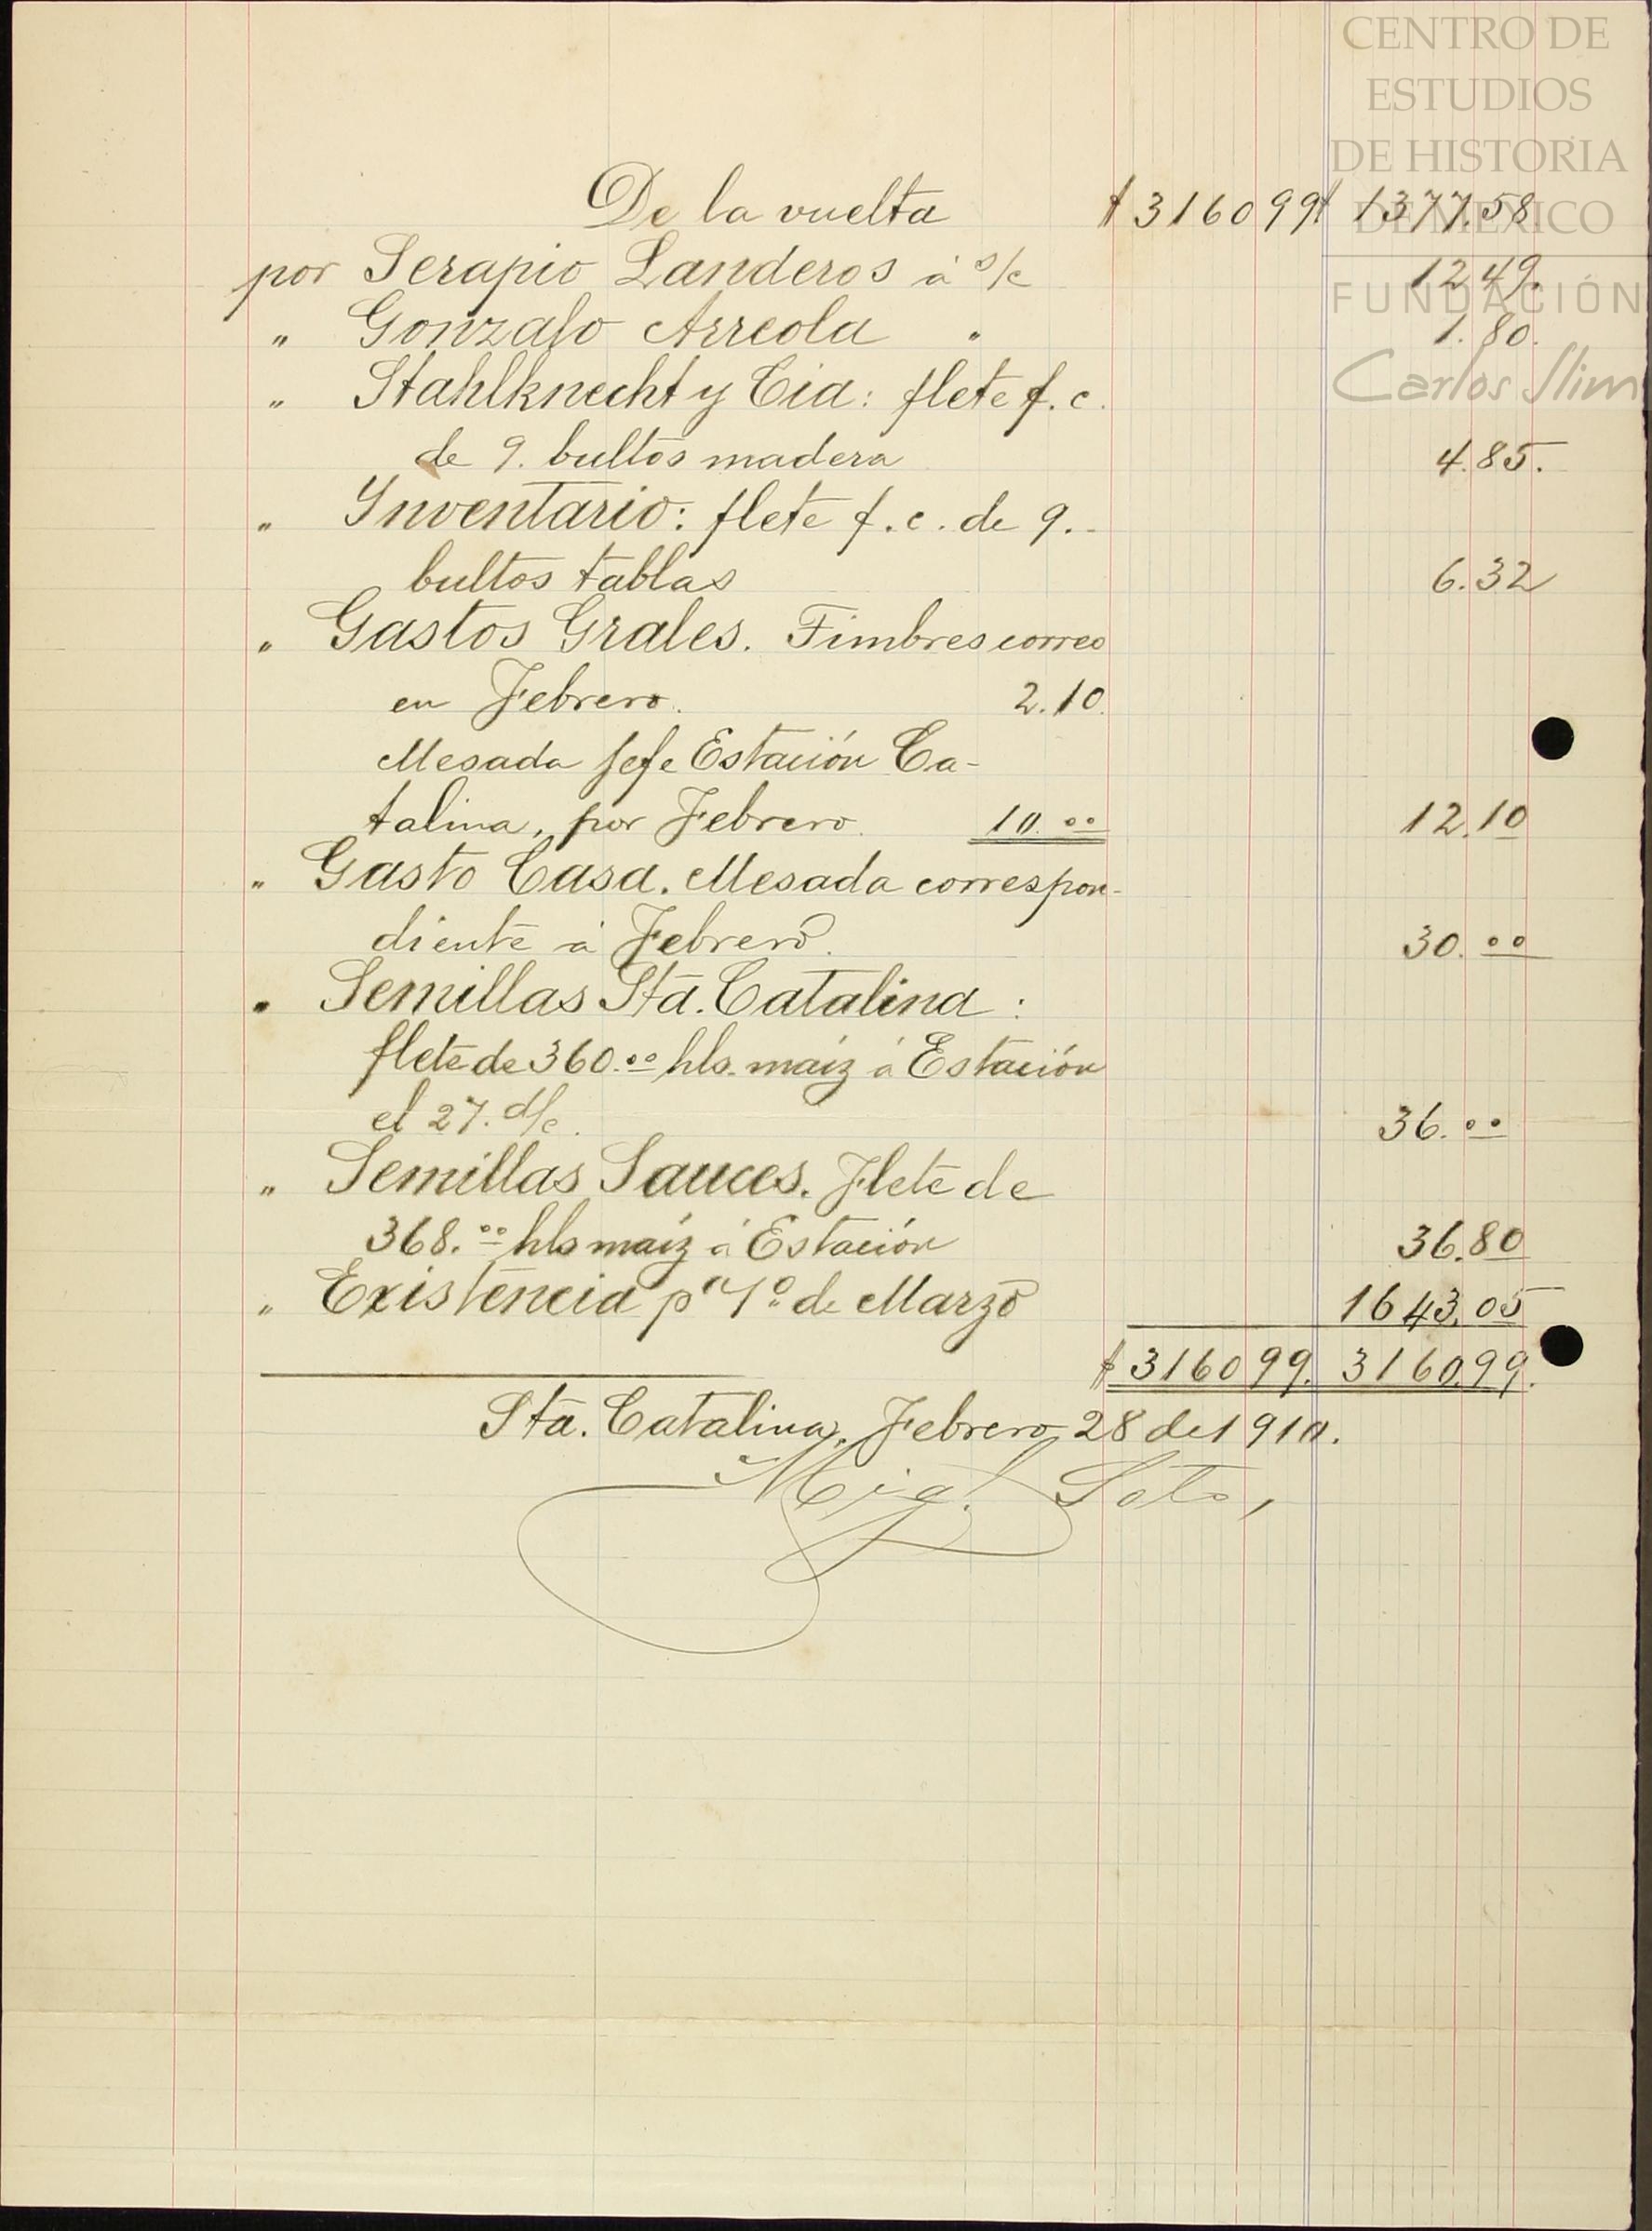 CENTRO DE
ESTUDIOS
DE HISTORIA
DE MÉXICO
FUNDACIÓN
Carlos Slim
De la vuelta $ 3160 99 $ 1377.58
por Serapio Landeros á s/c 12.49.
" Gonzalo Arreola " 1.80.
" Stahlknecht y Cia: flete f.c.
de 9. bultos madera 4.85.
" Inventario: flete f.c. de 9.-
bultos tablas 6.32
" Gastos Grales. Timbres correo
en Febrero. 2.10.
Mesada Jefe Estación Ca-
talina, por Febrero. 10.00 12.10
" Gasto Casa. Mesada correspon-
diente á Febrero. 30.00
" Semillas Sta. Catalina:
flete de 360.00 hls. maiz á Estación
el 27. d/c. 36.00
" Semillas Sauces. Flete de
368.00 hls maiz á Estación 36.80
" Existencia pa 1o de Marzo 1643.05
$ 3160 99. 3160.99.
Sta. Catalina, Febrero 28 de 1910.
Migl. Soto,